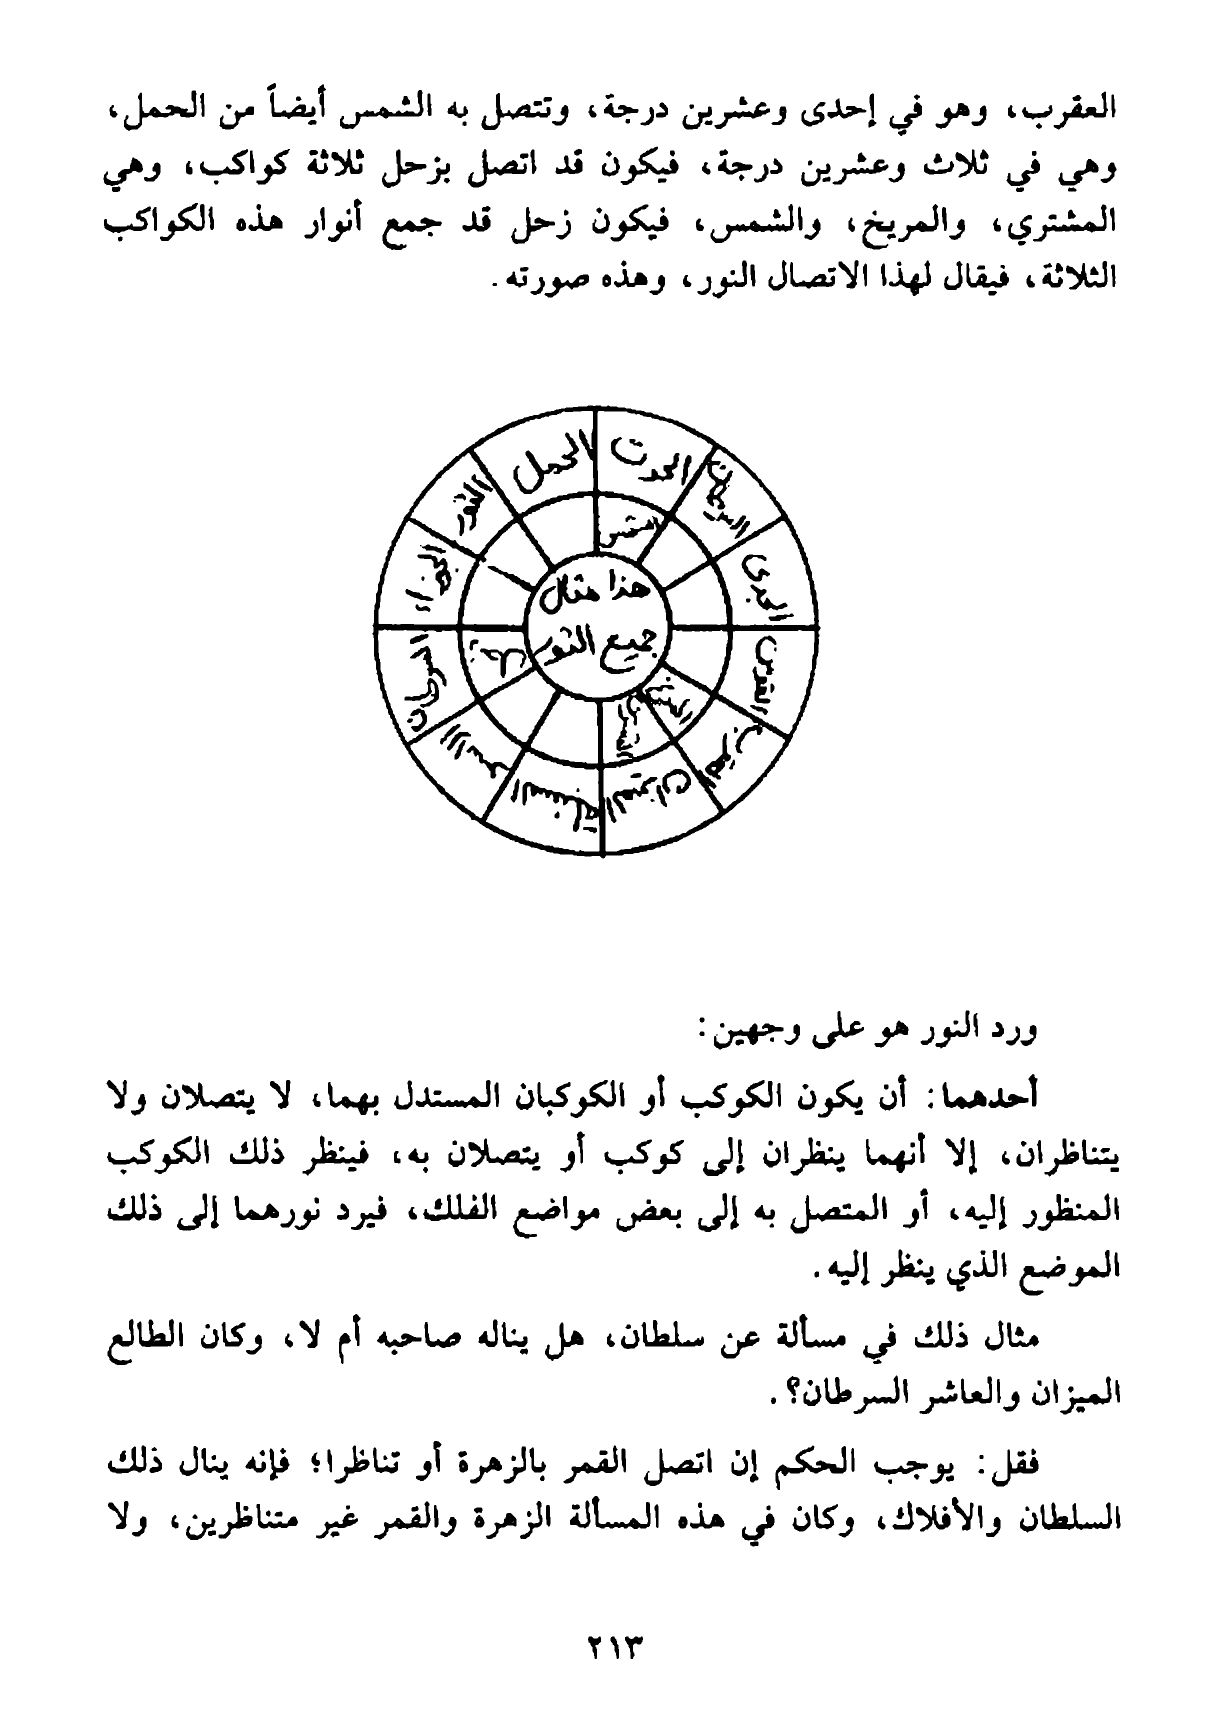 العقرب، وهو في إحدى وعشرين درجة، وتتصل به الشمس أيضاً من الحمل،
وهي في ثلاث وعشرين درجة، فيكون قد اتصل بزحل ثلاثة كواكب، وهي
المشتري، والمريخ، والشمس، فيكون زحل قد جمع أنوار هذه الكواكب
الثلاثة، فيقال لهذا الاتصال النور، وهذه صورته.
الحمل
الحوت
الثور
الجوزاء
الجدى
القوس
العقرب
الميزان
السنبلة
الأسد
السرطان
شمس
زحل
هذا مثال
جميع النور
ورد النور هو على وجهين:
أحدهما: أن يكون الكوكب أو الكوكبان المستدل بهما، لا يتصلان ولا
يتناظران، إلا أنهما ينظران إلى كوكب أو يتصلان به، فينظر ذلك الكوكب
المنظور إليه، أو المتصل به إلى بعض مواضع الفلك، فيرد نورهما إلى ذلك
الموضع الذي ينظر إليه.
مثال ذلك في مسألة عن سلطان، هل يناله صاحبه أم لا، وكان الطالع
الميزان والعاشر السرطان؟.
فقل: يوجب الحكم إن اتصل القمر بالزهرة أو تناظرا؛ فإنه ينال ذلك
السلطان والأفلاك، وكان في هذه المسألة الزهرة والقمر غير متناظرين، ولا
٢١٣